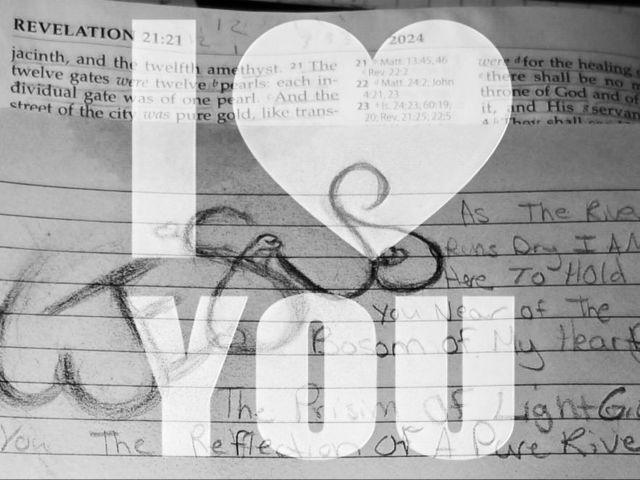 REVELATION 21:21
2024
jacinth, and the twelfth amethyst. 21 The
twelve gates were twelve b pearls: each in-
dividual gate was of one pearl. c And the
street of the city was pure gold, like trans-
21 b Matt. 13:45, 46
c Rev. 22:2
22 d Matt. 24:2; John
4:21, 23
23 e Is. 24:23; 60:19,
20; Rev. 21:25; 22:5
were d for the healing
e there shall be no m
throne of God and of
it, and His g servan
I
YOU
As The Rive
Runs Dry I AM
Here To Hold
You Near of The
Bosom of My Heart
The Prisim of Light Gi
You The Reflection Of A Pure Rive